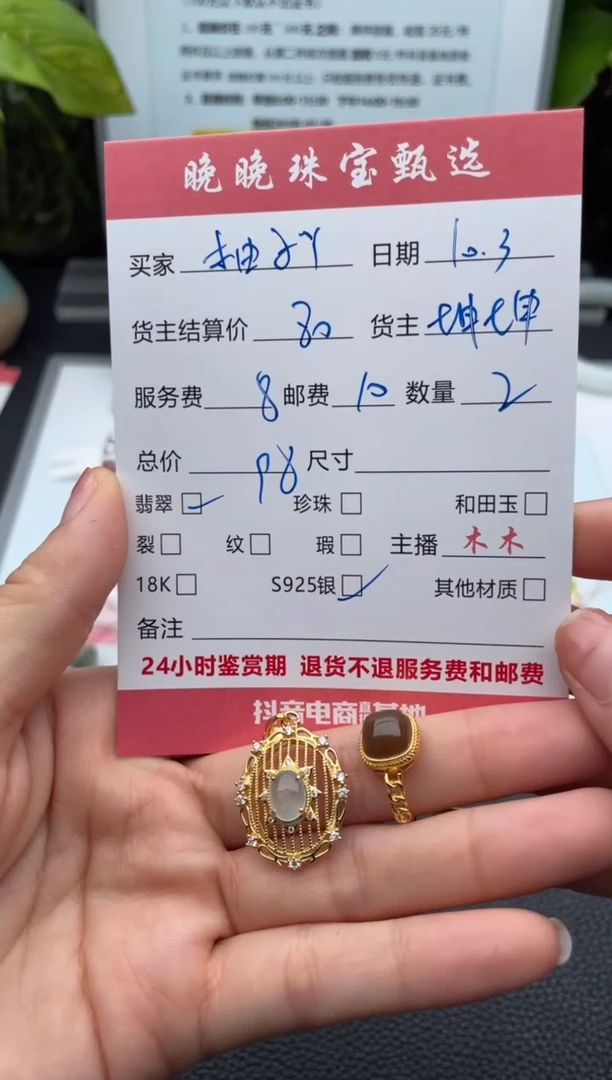 晚晚珠宝甄选
买家 柚子丫 日期 10.3
货主结算价 80 货主 坤坤
服务费 8 邮费 10 数量 2
总价 98 尺寸
翡翠☑ 珍珠□ 和田玉□
裂□ 纹□ 瑕□ 主播 木木
18K□ S925银☑ 其他材质□
备注
24小时鉴赏期 退货不退服务费和邮费
抖音电商 基地